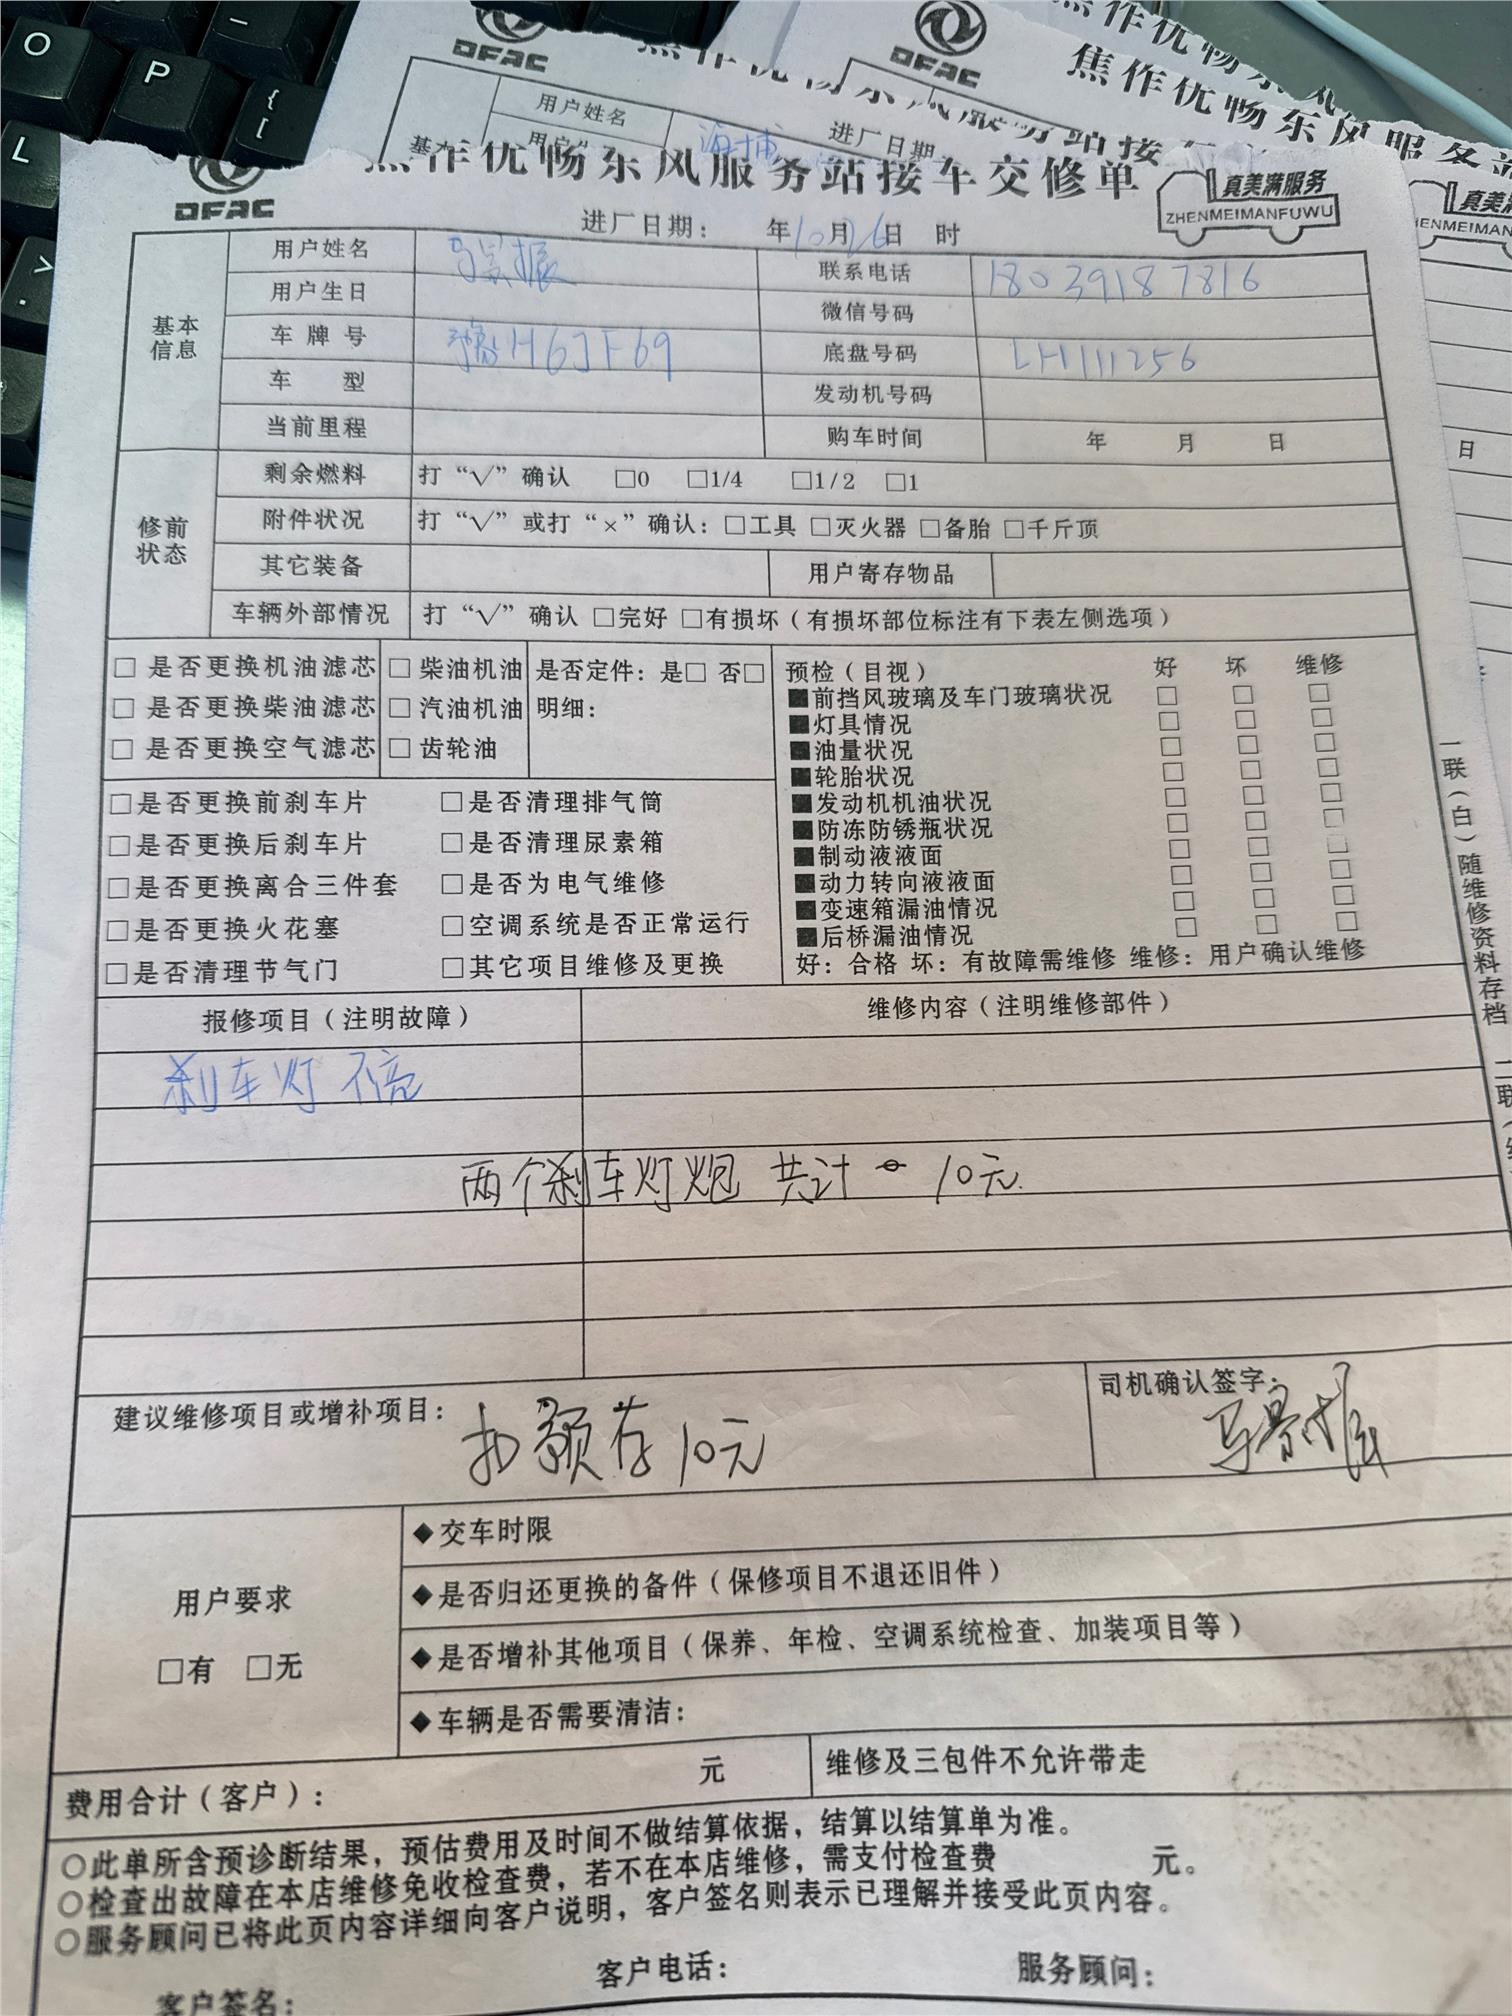 O
P
{
[
L
>
.
DFAC
DFAC
焦作优畅东风服务站
用户姓名
进厂日期
DFAC
焦作优畅东风服务站接车交修单
真美满服务
ZHENMEIMANFUWU
进厂日期: 年10月26日 时
基本信息
用户姓名 马景振 联系电话 18039187816
用户生日 微信号码
车牌号 豫H6JF69 底盘号码 LH111256
车 型 发动机号码
当前里程 购车时间 年 月 日
修前状态
剩余燃料 打“√”确认 □0 □1/4 □1/2 □1
附件状况 打“√”或打“×”确认: □工具 □灭火器 □备胎 □千斤顶
其它装备 用户寄存物品
车辆外部情况 打“√”确认 □完好 □有损坏(有损坏部位标注有下表左侧选项)
□ 是否更换机油滤芯 □ 柴油机油 是否定件: 是□ 否□
□ 是否更换柴油滤芯 □ 汽油机油 明细:
□ 是否更换空气滤芯 □ 齿轮油
□是否更换前刹车片 □是否清理排气筒
□是否更换后刹车片 □是否清理尿素箱
□是否更换离合三件套 □是否为电气维修
□是否更换火花塞 □空调系统是否正常运行
□是否清理节气门 □其它项目维修及更换
预检(目视) 好 坏 维修
■前挡风玻璃及车门玻璃状况 □ □ □
■灯具情况 □ □ □
■油量状况 □ □ □
■轮胎状况 □ □ □
■发动机机油状况 □ □ □
■防冻防锈瓶状况 □ □ □
■制动液液面 □ □ □
■动力转向液液面 □ □ □
■变速箱漏油情况 □ □ □
■后桥漏油情况 □ □ □
好: 合格 坏: 有故障需维修 维修: 用户确认维修
一联(白)随维修资料存档 二联
报修项目(注明故障) 维修内容(注明维修部件)
刹车灯不亮
两个刹车灯炮 共计 10元
建议维修项目或增补项目: 扣预存10元
司机确认签字: 马景振
用户要求
□有 □无
◆交车时限
◆是否归还更换的备件(保修项目不退还旧件)
◆是否增补其他项目(保养、年检、空调系统检查、加装项目等)
◆车辆是否需要清洁:
费用合计(客户): 元 维修及三包件不允许带走
○此单所含预诊断结果，预估费用及时间不做结算依据，结算以结算单为准。
○检查出故障在本店维修免收检查费，若不在本店维修，需支付检查费 元。
○服务顾问已将此页内容详细向客户说明，客户签名则表示已理解并接受此页内容。
客户签名: 客户电话: 服务顾问:
日